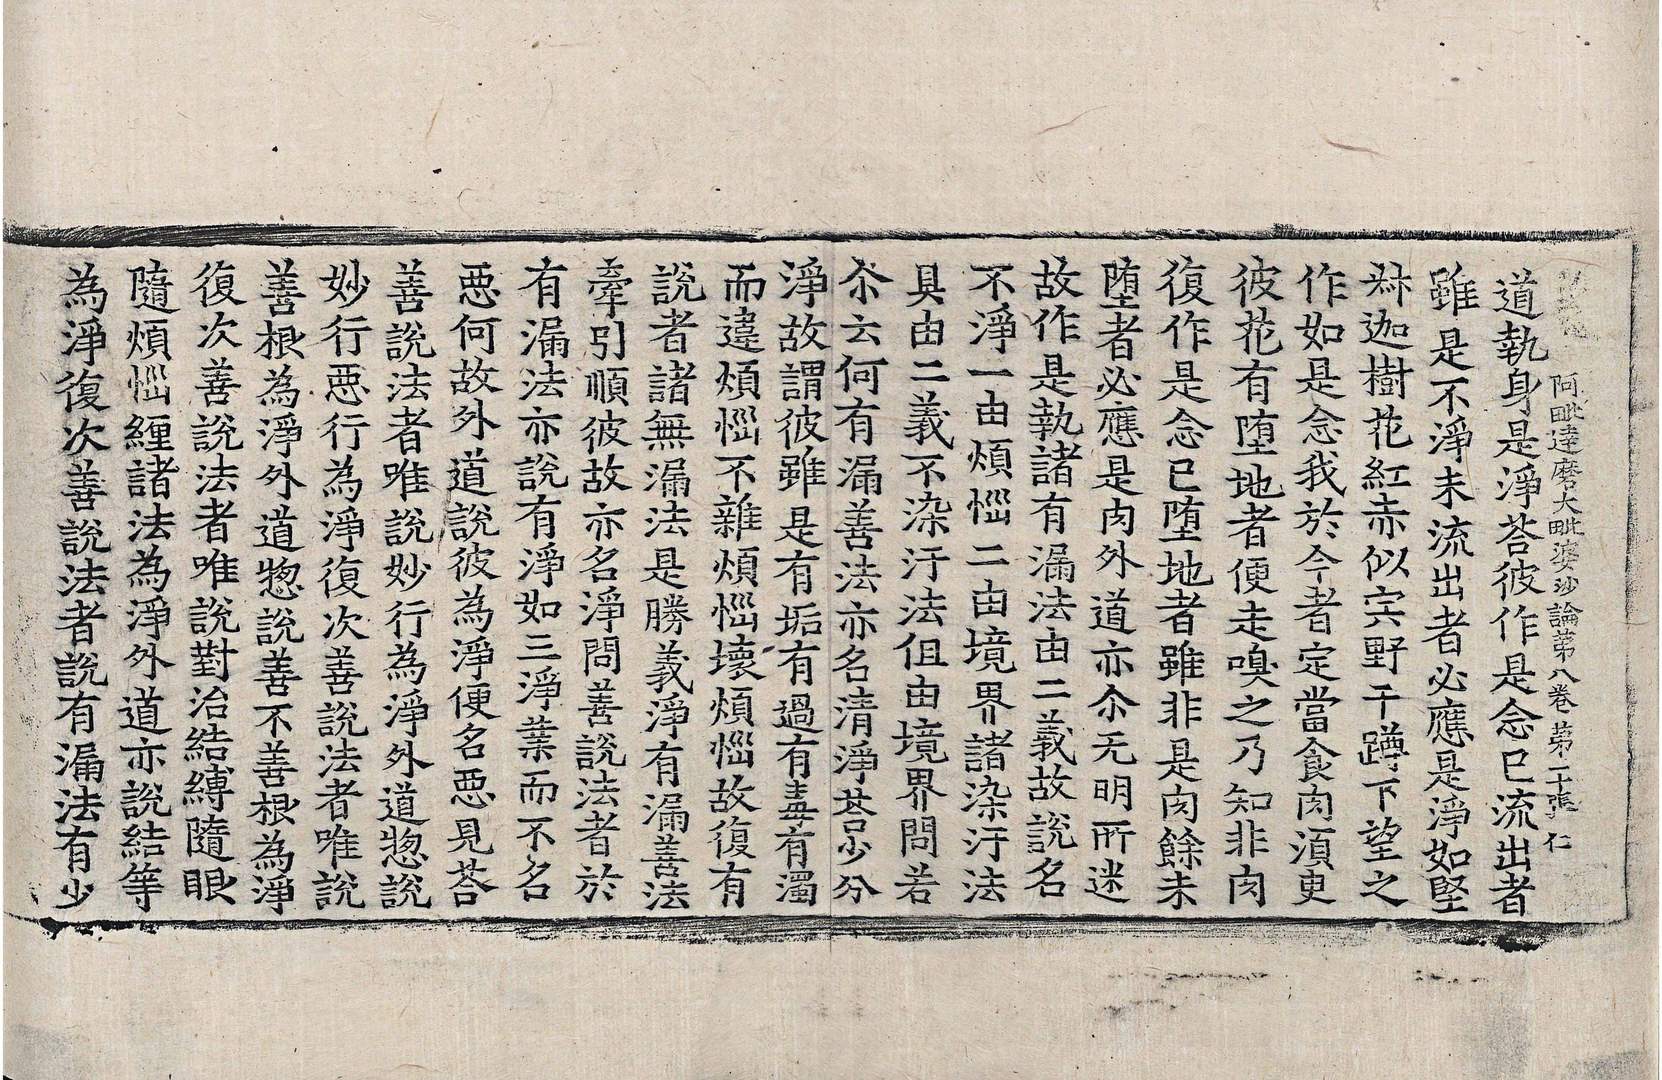 阿毗達磨大毗婆沙論第八卷 第二十張 仁
道執身是淨荅彼作是念已流出者
雖是不淨未流出者必應是淨如堅
㭊迦樹花紅赤似宍野干蹲下望之
作如是念我於今者定當食肉湏臾
彼花有墮地者便走嗅之乃知非肉
復作是念已墮地者雖非是肉餘未
墮者必應是肉外道亦尒无明所迷
故作是執諸有漏法由二義故說名
不淨一由煩惱二由境界諸染汙法
具由二義不染汙法但由境界問若
尒云何有漏善法亦名清淨荅少分
淨故謂彼雖是有垢有過有毒有濁
而違煩惱不雜煩惱壞煩惱故復有
說者諸無漏法是勝義淨有漏善法
牽引順彼故亦名淨問善說法者於
有漏法亦說有淨如三淨業而不名
惡何故外道說彼為淨便名惡見荅
善說法者唯說妙行為淨外道惣說
妙行惡行為淨復次善說法者唯說
善根為淨外道惣說善不善根為淨
復次善說法者唯說對治結縛隨眠
隨煩惱纏諸法為淨外道亦說結等
為淨復次善說法者說有漏法有少